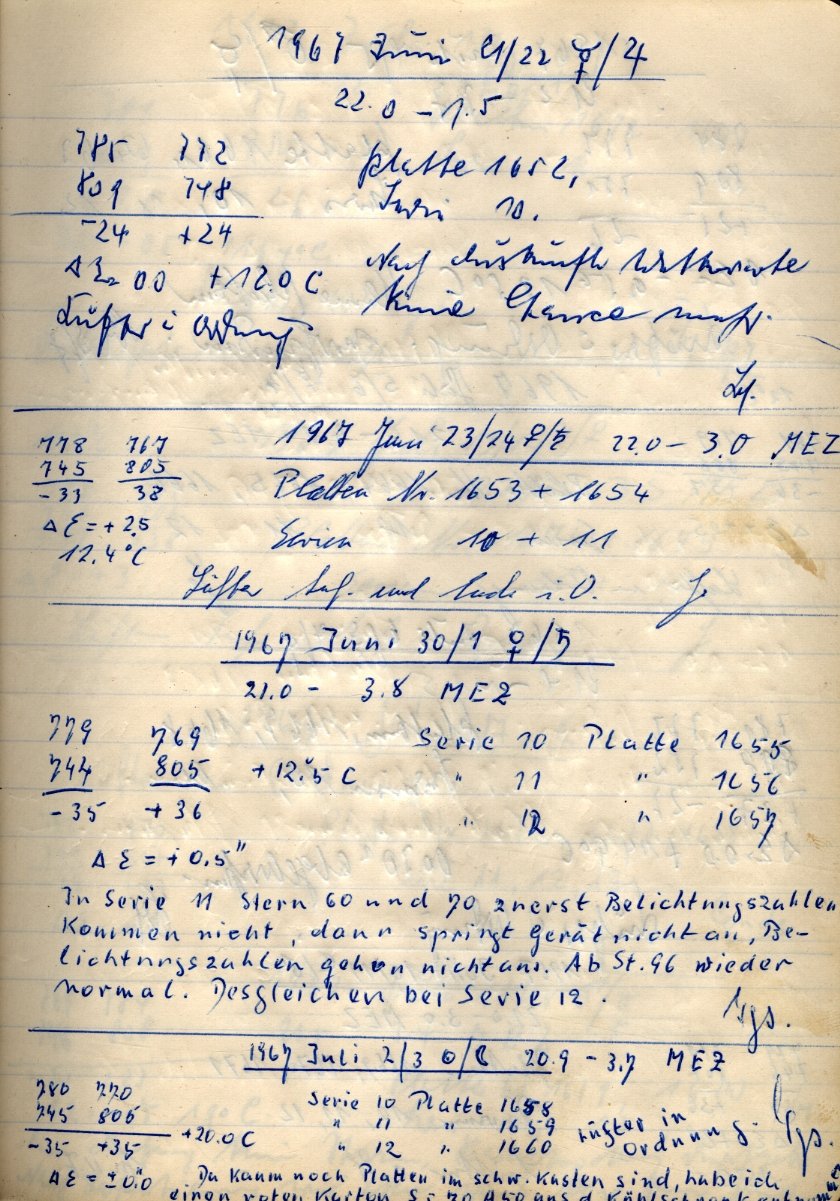 1967 Juni 21/22 ☿/♃
22.0 – 1.5
785 772 Platte 1652,
809 748 Serie 10.
-24 +24
Δε = 00 +12.0 C Nach Auskunft Wetterwarte
Lüfter i Ordnung. keine Chance mehr.
1967 Juni 23/24 ♀/♄ 22.0 – 3.0 MEZ
778 767
745 805 Platten Nr. 1653 + 1654
-33 38
Δε = + 2.5 Serien 10 + 11
12.4°C
Lüfter und i.O.
1967 Juni 30/1 ♀/♄
21.0 – 3.8 MEZ
779 769 Serie 10 Platte 1655
744 805 +12.5 C " 11 " 1656
-35 +36 " 12 " 1657
Δε = + 0.5"
In Serie 11 Stern 60 und 70 zuerst Belichtungszahlen
kommen nicht, dann springt Gerät nicht an, Be-
lichtungszahlen gehen nicht aus. Ab St. 96 wieder
normal. Desgleichen bei Serie 12.
1967 Juli 2/3 ☉/☾ 20.9 – 3.7 MEZ
780 770 Serie 10 Platte 1658
745 805 " 11 " 1659 Lüfter in
-35 +35 +20.0 C " 12 " 1660 Ordnung.
Δε = ±0.0" Da kaum noch Platten im schw. Kasten sind, habe ich
einen roten Karton